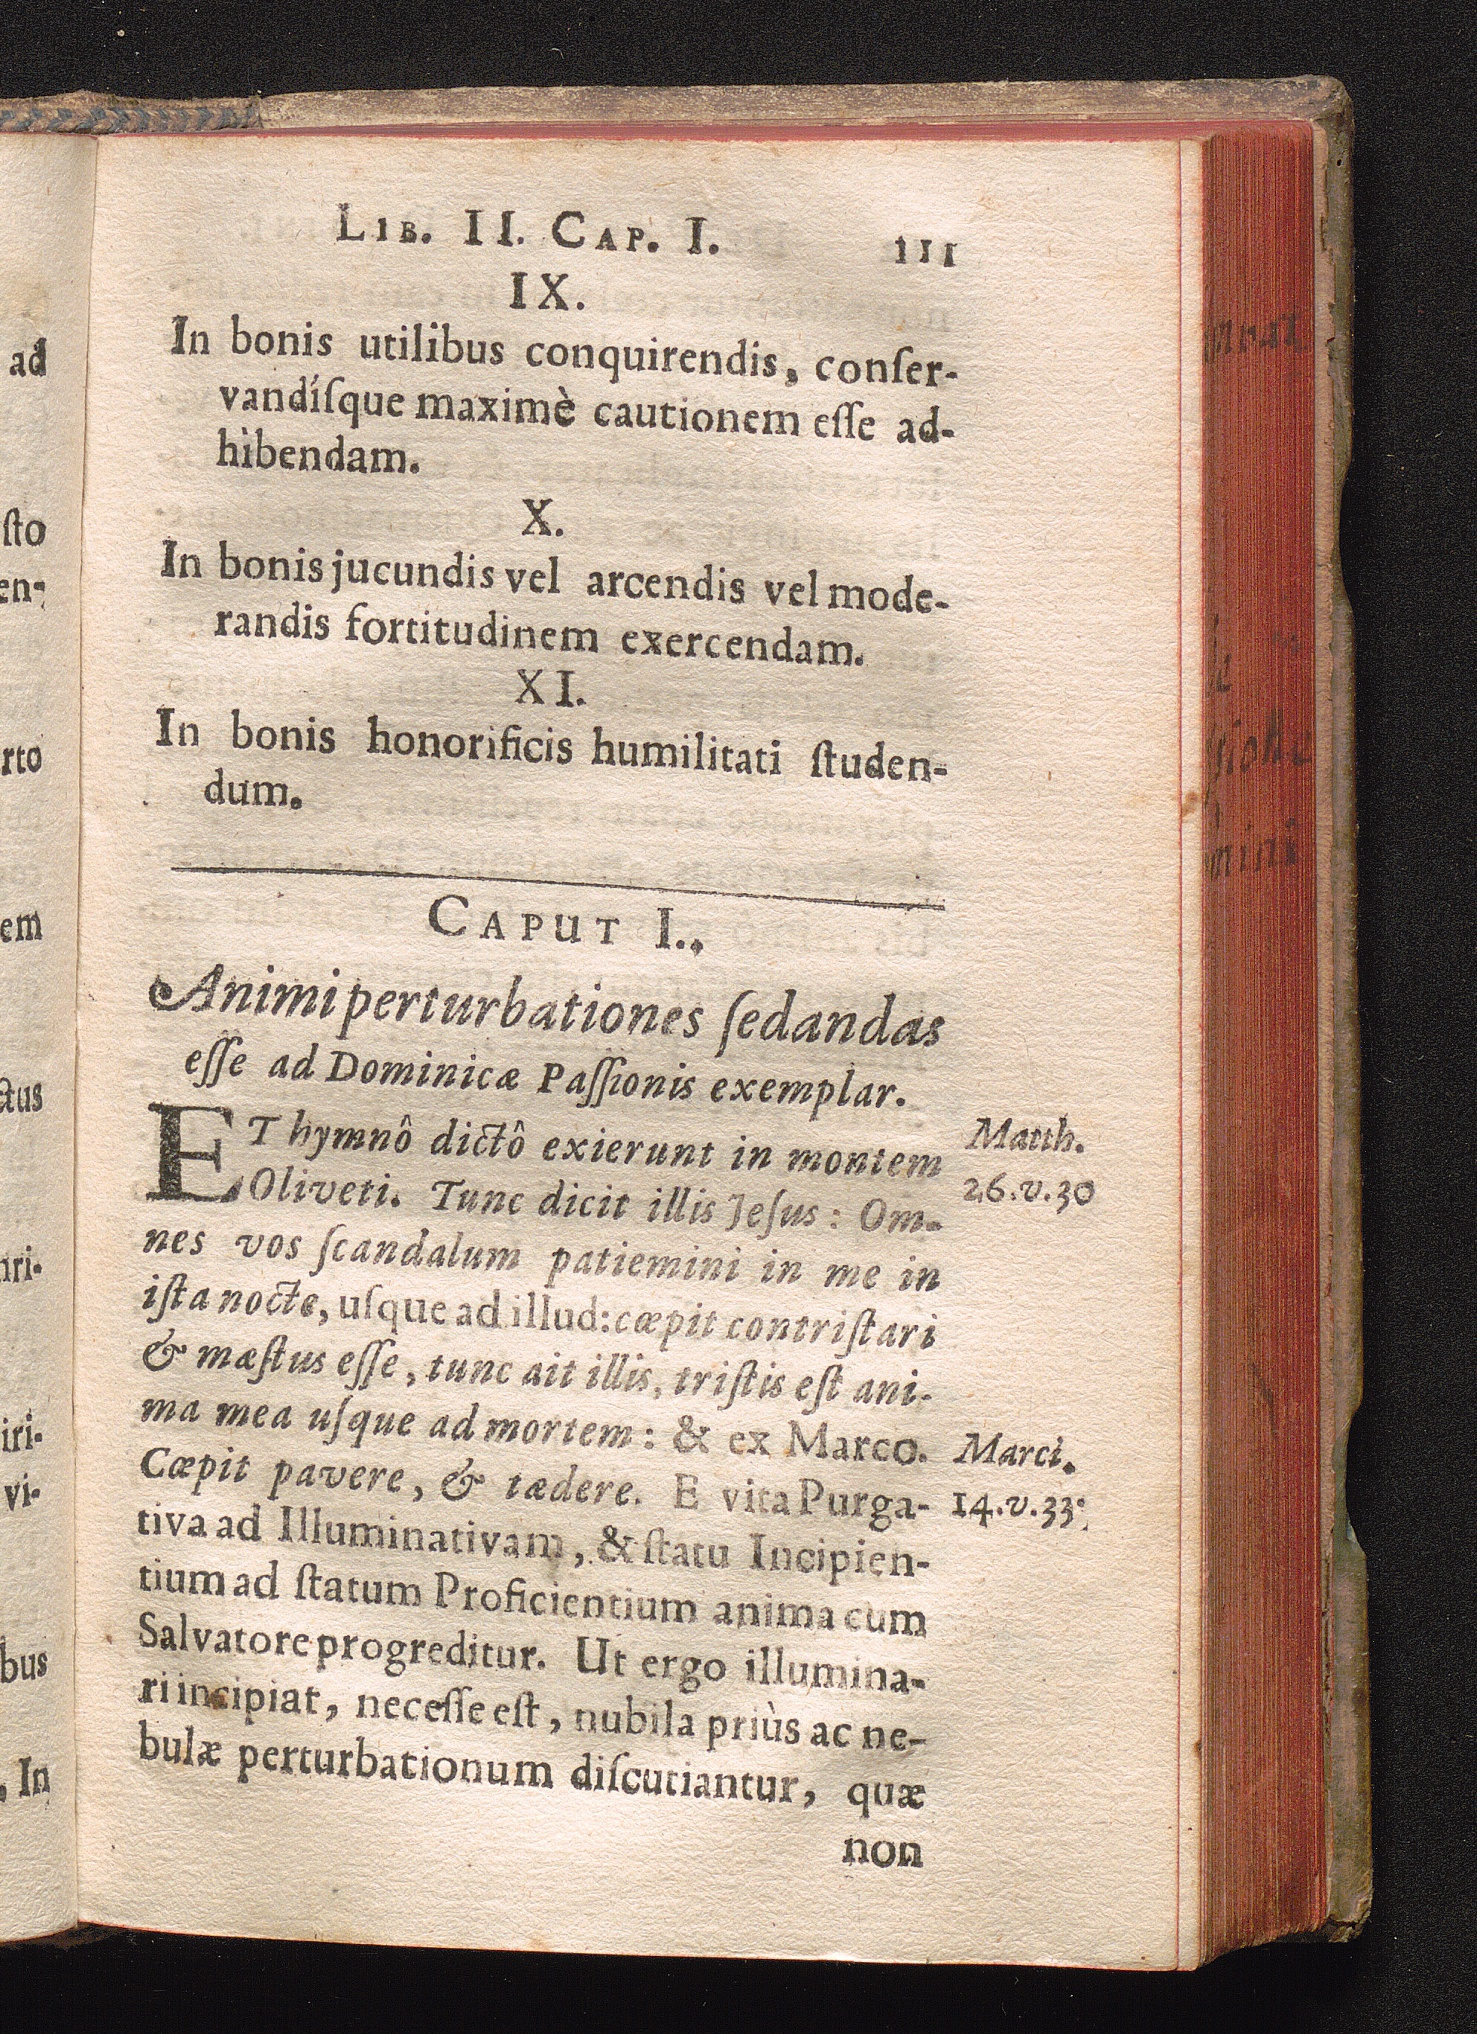 ad
ſto
en-
rto
em
ctus
iri-
vi-
bus
, In
LIB. II. CAP. I. 111
IX.
In bonis utilibus conquirendis, conſer-
vandíſque maximè cautionem eſſe ad-
hibendam.
X.
In bonis jucundis vel arcendis vel mode-
randis fortitudinem exercendam.
XI.
In bonis honorificis humilitati ſtuden-
dum.
CAPUT I.
Animi perturbationes ſedandas
eſſe ad Dominicæ Paſſionis exemplar.
ET hymnô dictô exierunt in montem
Oliveti. Tunc dicit illis Jeſus: Om-
nes vos ſcandalum patiemini in me in
iſta nocte, uſque ad illud: cœpit contriſtari
& mæſtus eſſe, tunc ait illis, triſtis eſt ani-
ma mea uſque ad mortem: & ex Marco.
Cœpit pavere, & tædere. E vita Purga-
tiva ad Illuminativam, & ſtatu Incipien-
tium ad ſtatum Proficientium anima cum
Salvatore progreditur. Ut ergo illumina-
ri incipiat, neceſſe eſt, nubila priùs ac ne-
bulæ perturbationum diſcutiantur, quæ
non
Matth.
26.v.30
Marci.
14.v.33.